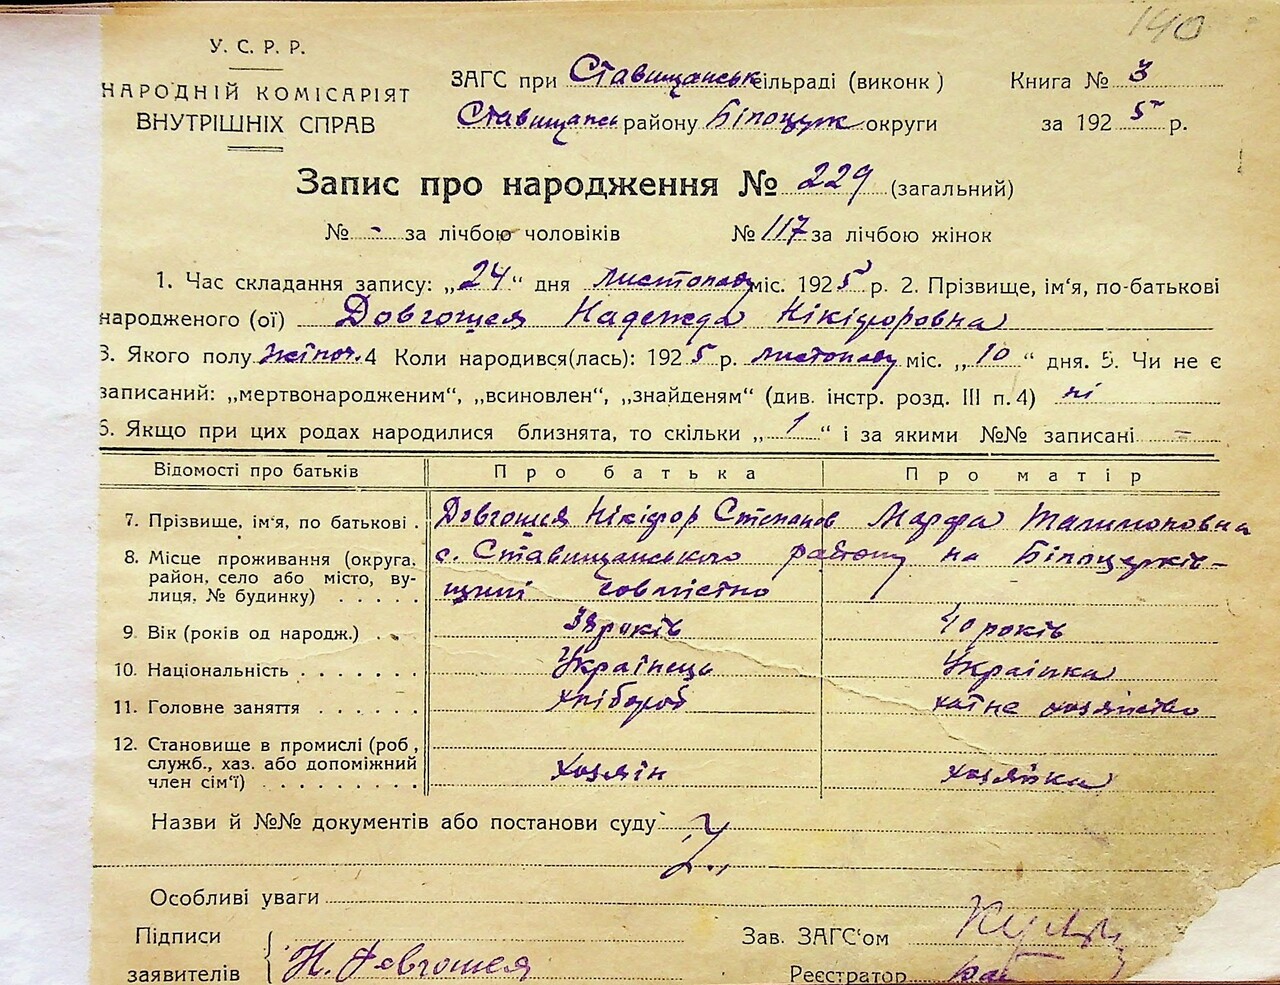 140
У. С. Р. Р.
НАРОДНІЙ КОМІСАРІЯТ
ВНУТРІШНІХ СПРАВ
ЗАГС при Ставищанськ сільраді (виконк )
Ставищансь району Білоцерк округи
Книга № 3
за 1925 р.
Запис про народження № 229 (загальний)
№ - за лічбою чоловіків № 117 за лічбою жінок
1. Час складання запису: „24“ дня листопаду міс. 1925 р. 2. Прізвище, ім‘я, по-батькові
народженого (ої) Довгошея Надежда Нікіфоровна
3. Якого полу жіноч. 4 Коли народився(лась): 1925 р. листопаду міс. „10“ дня. 5. Чи не є
записаний: „мертвонародженим“, „всиновлен“, „знайденям“ (див. інстр. розд. III п. 4) ні
6. Якщо при цих родах народилися близнята, то скільки „1“ і за якими №№ записані –
Відомості про батьків Про батька Про матір
7. Прізвище, ім‘я, по батькові . Довгошея Нікіфор Степанов Марфа
8. Місце проживання (округа, район, село або місто, вулиця, № будинку) . . . . . с. Ставищанського району на Білоцерків-
щині совмістно
9. Вік (років од народж.) 38 років 40 років
10. Національність . . . . . . . Українець Українка
11. Головне заняття . . . . . . хлібороб хатне хозяйство
12. Становище в промислі (роб., служб., хаз. або допоміжний член сім‘ї) . . . . . . . . . хозяін хозяйка
Назви й №№ документів або постанови суду
Особливі уваги
Підписи
заявителів Н. Довгошея
Зав. ЗАГС‘ом
Реєстратор